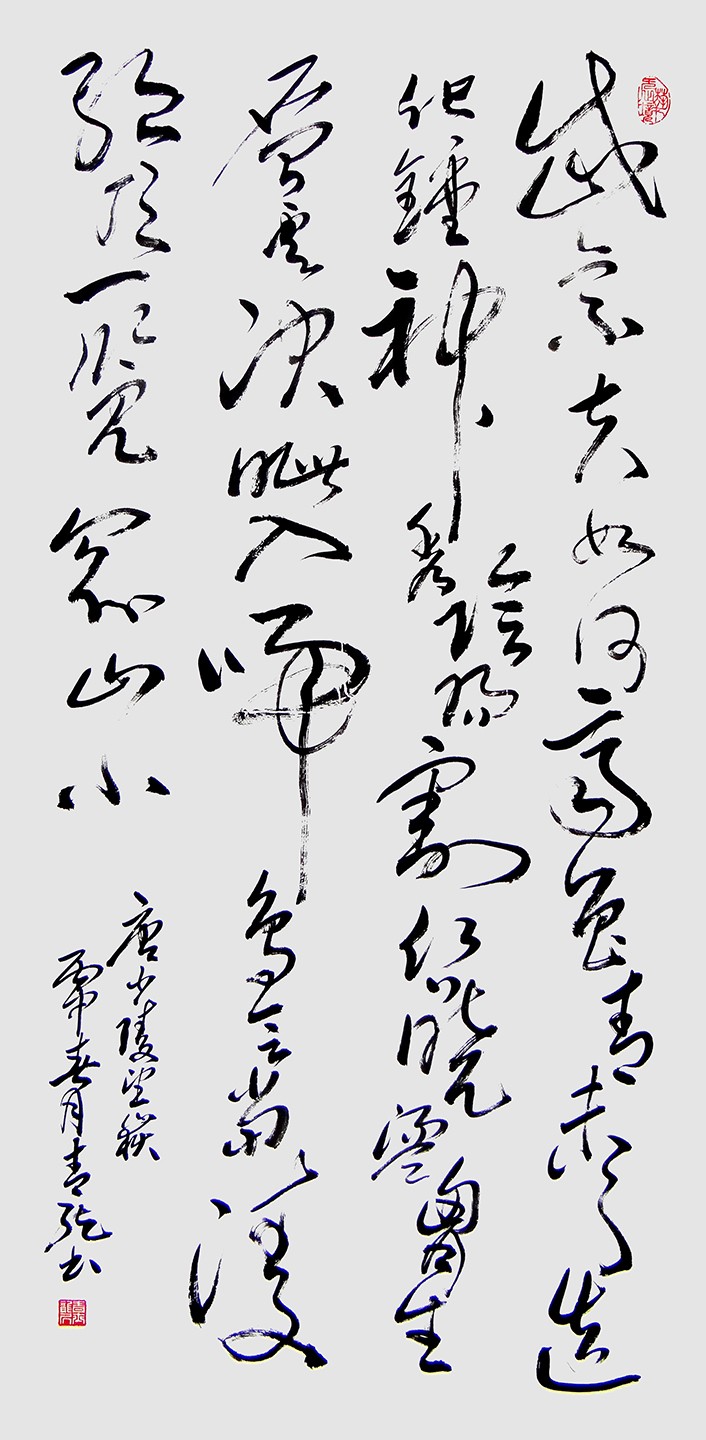 岱宗夫如何齊魯青未了造
化鍾神秀陰陽割昏曉盪胷生
層雲決眦入歸鳥會當凌
絕頂一覽眾山小
唐少陵望嶽
丙申春月青龍書